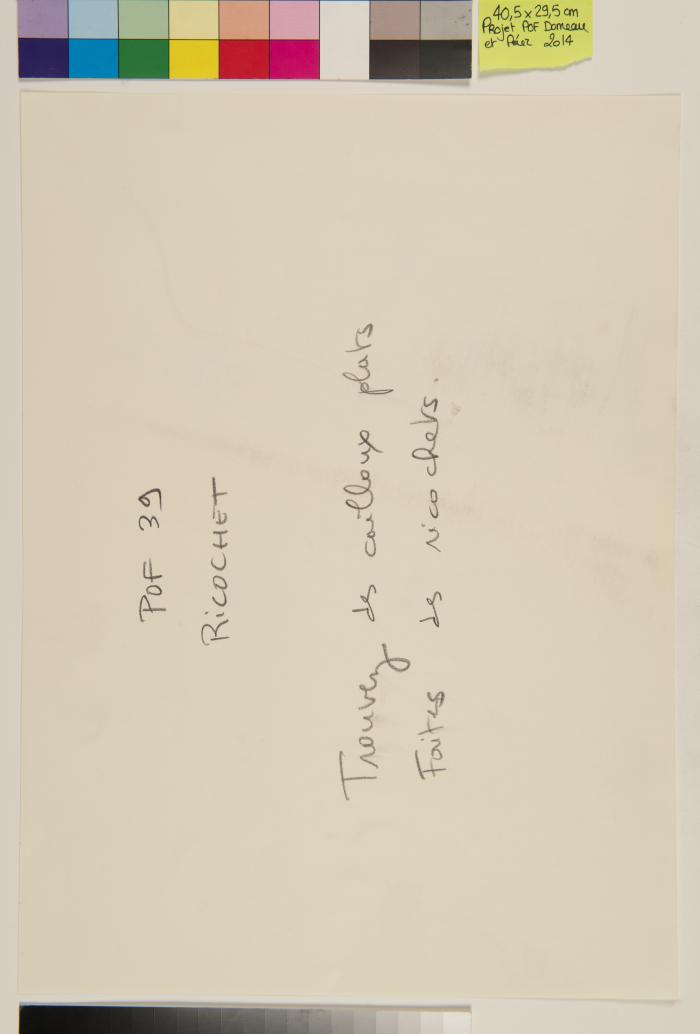 40,5 x 29,5 cm
Projet POF Domeau
et Pérès 2014
POF 39
RICOCHET
Trouvez des cailloux plats
Faites des ricochets.